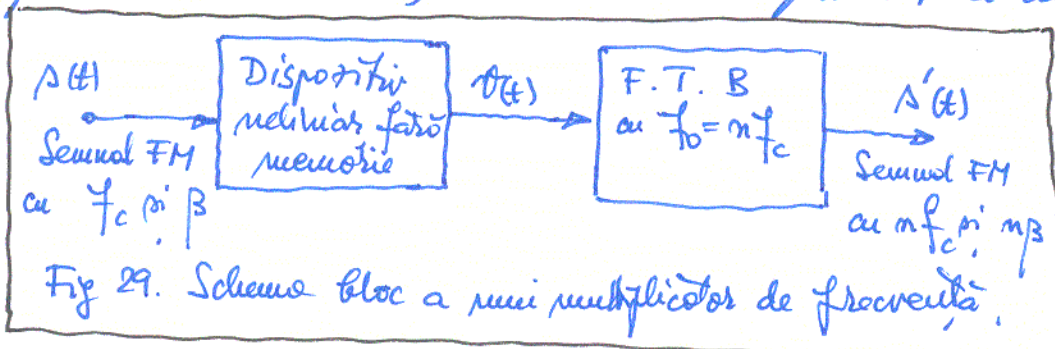 s(t)
Semnal FM
cu fc și β
Dispozitiv
neliniar fără
memorie
v(t)
F. T. B
cu f0 = nfc
s'(t)
Semnal FM
cu nfc și nβ
Fig 29. Schema bloc a unui multiplicator de frecvență.